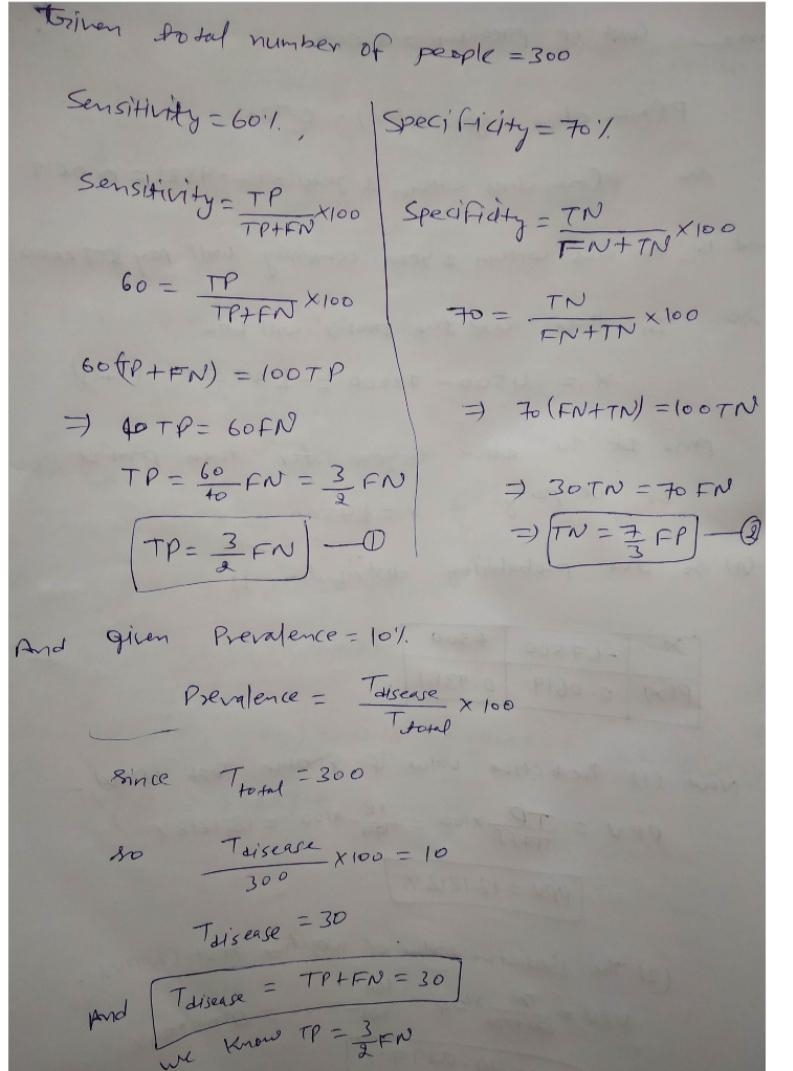 Given total number of people = 300
Sensitivity = 60%,
Sensitivity = TP / TP+FN ×100
60 = TP / TP+FN ×100
60(TP+FN) = 100TP
⇒ 40 TP = 60FN
TP = 60/40 FN = 3/2 FN
TP = 3/2 FN —①
Specificity = 70%
Specificity = TN / FN+TN ×100
70 = TN / FN+TN ×100
⇒ 70(FN+TN) = 100TN
⇒ 30TN = 70 FN
⇒ TN = 7/3 FP —②
And given Prevalence = 10%.
Prevalence = Tdisease / Ttotal × 100
Since Ttotal = 300
so Tdisease / 300 ×100 = 10
Tdisease = 30
And Tdisease = TP+FN = 30
we know TP = 3/2 FN